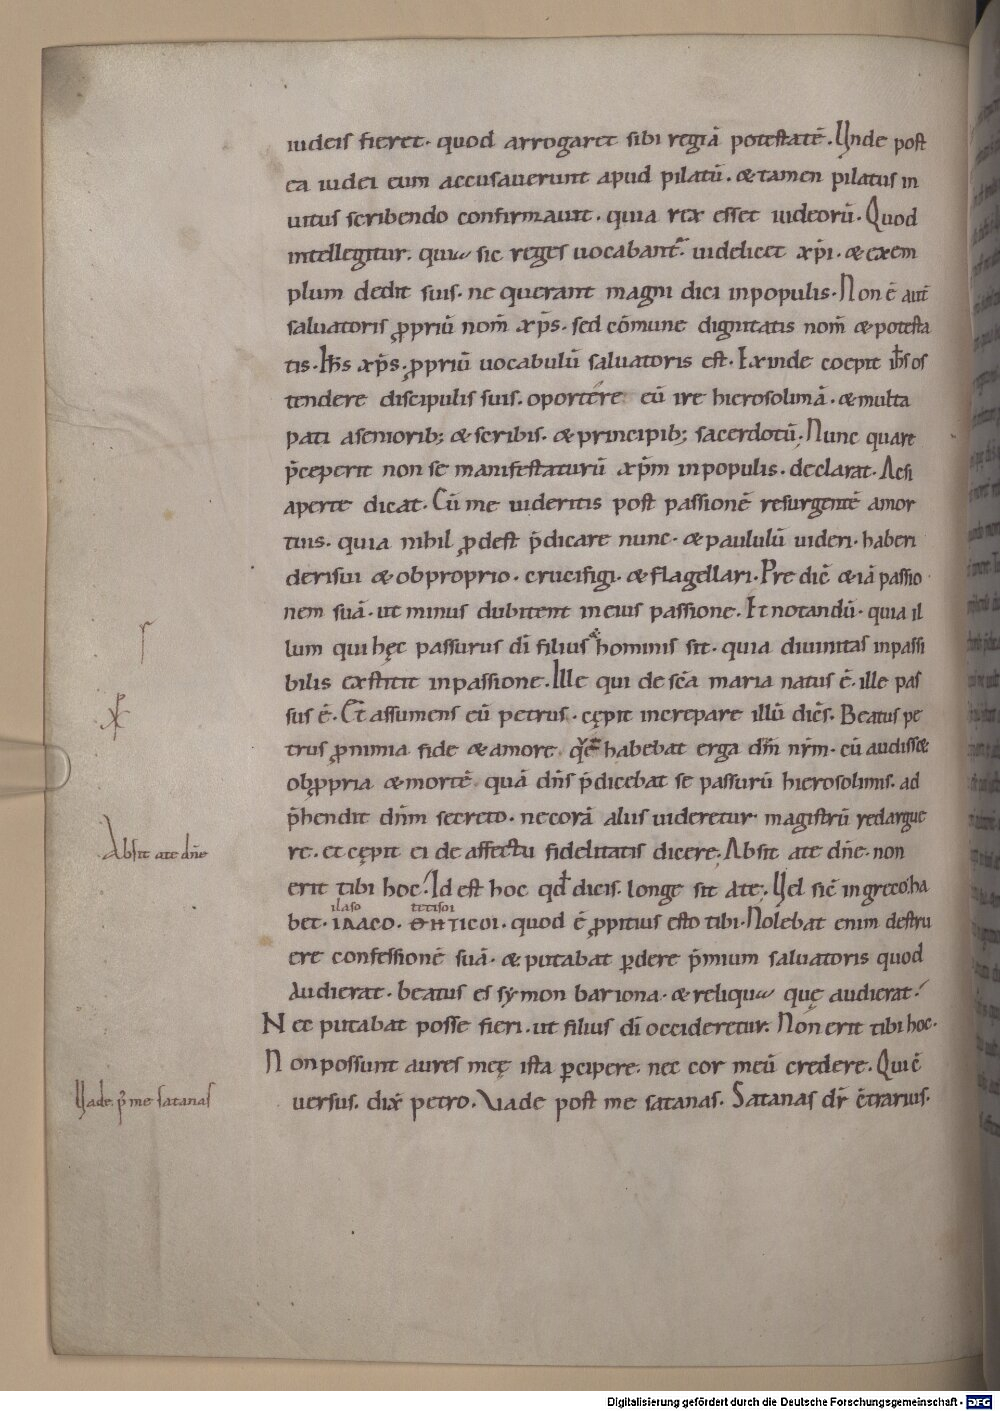 iudeis fieret· quod arrogaret sibi regiā potestatē. Unde post
ea iudei eum accusauerunt apud pilatū. & tamen pilatus in
uitus scribendo confirmauit. quia rex esset iudeorū. Quod
intellegitur. quia sic reges uocabant᷑. uidelicet xp̄i. & exem
plum dedit suis· ne querant magni dici inpopulis· Non ē aut̄
saluatoris ꝓpriū nom̄ xp̄s· sed cōmune dignitatis nom̄ & potesta
tis· Ih̄s xp̄s· ꝓpriū uocabulū saluatoris est. Exinde coepit ih̄s os
tendere discipulis suis. oportére eū ire hierosolimā. & multa
pati asenioribꝫ & scribis. & principibꝫ sacerdotū. Nunc quare
p̄ceperit non se manifestaturū xp̄m inpopulis. declarat. Acsi
aperte dicat. Cū me uideritis post passionē resurgentē amor
tuis. quia nihil ꝓdest p̄dicare nunc· & paululū uideri· haberi
derisui & obproprio. crucifigi. & flagellari. Predic̄ & iā passio
nem suā. ut minus dubitent ineius passione. Et notandū· quia il
lum qui hęc passurus dī filius hominis sit· quia diuinitas inpassi
bilis exstitit inpassione. Ille qui de sc̄a maria natus ē. ille pas
sus ē. Et assumens eū petrus. cępit increpare illū dic̄s. Beatus pe
trus ꝓnimia fide & amore quē habebat erga dn̄m nr̄m. cū audiss&
obꝓpria & mortē quā dn̄s p̄dicebat se passurū hierosolimis. ad
p̄hendit dn̄m secreto. necorā aliis uideretur magistrū redargue
re. et cępit ei de affectu fidelitatis dicere. Absit ate dn̄e· non
erit tibi hoc. Id est hoc qd̄ dicis. longe sit ate. Uel sic̄ ingreco ha
ilaso tetisoi
bet. ΙΛΑCΟ. ΘΗΤΙCΟΙ. quod ē ꝓpitius esto tibi. Nolebat enim destru
ere confessionē suā. & putabat ꝑdere p̄mium saluatoris quod
Audierat. beatus es symon bariona. & reliqua quę audierat.
Nec putabat posse fieri. ut filius dī occideretur. Non erit tibi hoc.
Non possunt aures meę ista ꝑcipere. nec cor meū credere. Qui c̄
uersus. dix̄ petro. Uade post me satanas. Satanas dr̄ c̄trarius.
Absit ate dn̄e
Uade p᷒ me satanas
Digitalisierung gefördert durch die Deutsche Forschungsgemeinschaft - DFG